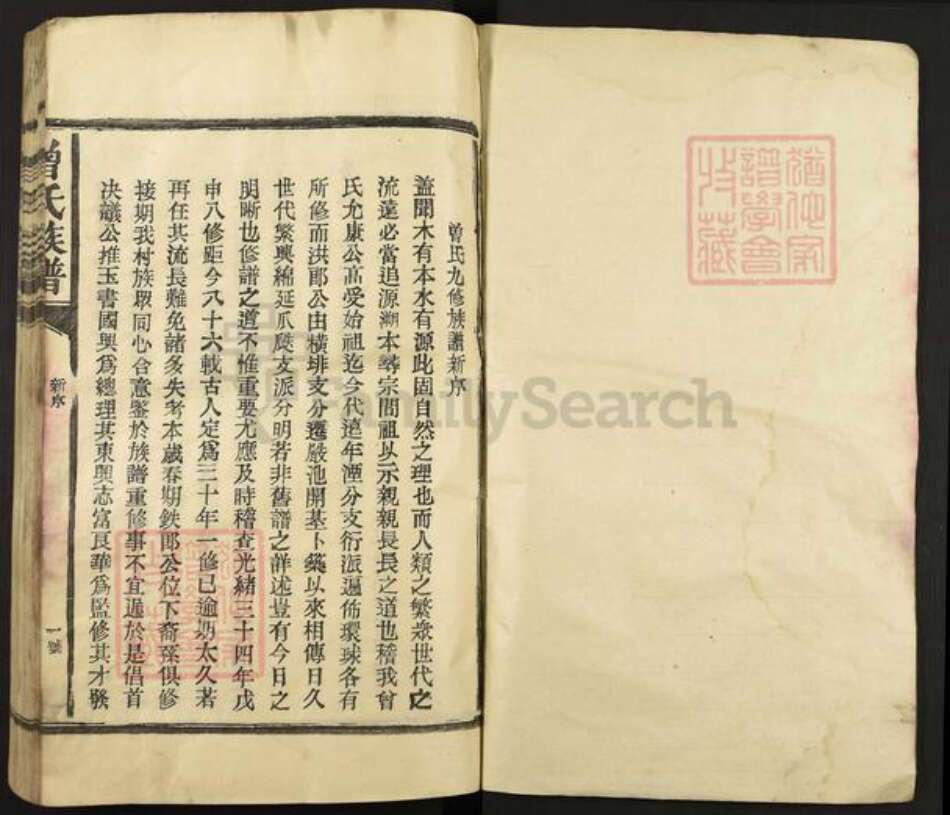 猶他家
譜學會
收藏
曾氏九修族譜新序
蓋聞木有本水有源此固自然之理也而人類之繁衆世代之
流遠必當追源溯本尋宗問祖以示親親長長之道也稽我曾
氏允康公高受始祖迄今代遠年湮分支衍派遍佈環球各有
所修而洪郎公由橫排支分遷嚴池開基卜築以來相傳日久
世代繁興綿延瓜瓞支派分明若非舊譜之詳述豈有今日之
明晰也修譜之道不惟重要尤應及時稽查光緒三十四年戊
申八修距今八十六載古人定爲三十年一修已逾期太久若
再任其流長難免諸多失考本歲春期鉄郎公位下裔孫俱修
接期我村族眾同心合意鉴於族譜重修事不宜遲於是倡首
决議公推玉書國興爲總理其東興志富良華爲監修其才發
曾氏族譜
新序
一號
FamilySearch